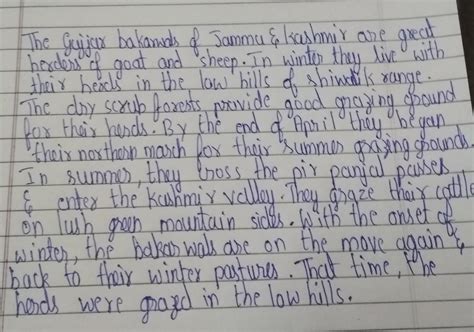 The Gujjar bakarwals of Jammu & Kashmir are great
herders of goat and sheep. In winter they live with
their herds in the low hills of shiwalik range.
The dry scrub forests provide good grazing ground
for their herds. By the end of April they began
their northern march for their summer grazing ground.
In summer, they cross the pir panjal passes
& enter the Kashmir valley. They graze their cattle
on lush green mountain sides. With the onset of
winter, the bakarwals are on the move again &
back to their winter pastures. That time, the
herds were grazed in the low hills.